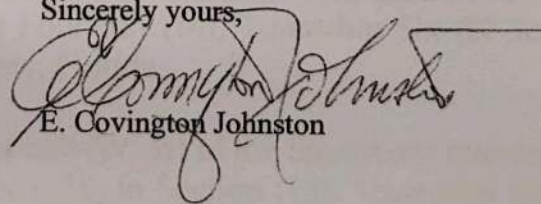 Sincerely yours,
E Covington Johnston
E. Covington Johnston